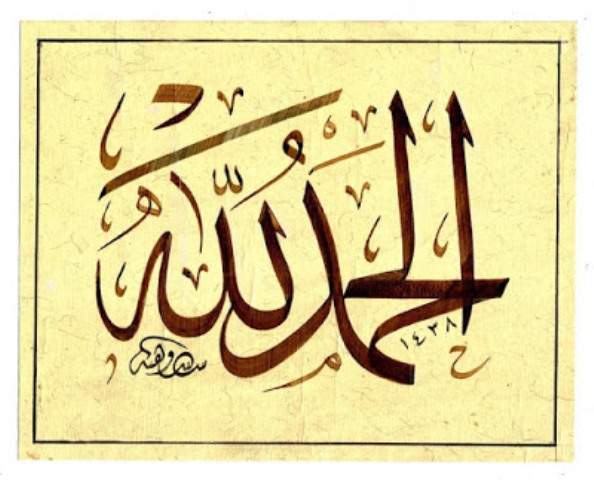 الحمد لله
١٤٣٨